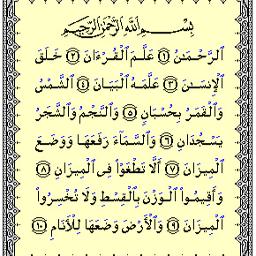 بِسْمِ اللَّهِ الرَّحْمَٰنِ الرَّحِيمِ
ٱلرَّحْمَـٰنُ ﴿١﴾ عَلَّمَ ٱلْقُرْءَانَ ﴿٢﴾ خَلَقَ
ٱلْإِنسَـٰنَ ﴿٣﴾ عَلَّمَهُ ٱلْبَيَانَ ﴿٤﴾ ٱلشَّمْسُ
وَٱلْقَمَرُ بِحُسْبَانٍ ﴿٥﴾ وَٱلنَّجْمُ وَٱلشَّجَرُ
يَسْجُدَانِ ﴿٦﴾ وَٱلسَّمَآءَ رَفَعَهَا وَوَضَعَ
ٱلْمِيزَانَ ﴿٧﴾ أَلَّا تَطْغَوْا۟ فِى ٱلْمِيزَانِ ﴿٨﴾
وَأَقِيمُوا۟ ٱلْوَزْنَ بِٱلْقِسْطِ وَلَا تُخْسِرُوا۟
ٱلْمِيزَانَ ﴿٩﴾ وَٱلْأَرْضَ وَضَعَهَا لِلْأَنَامِ ﴿١٠﴾